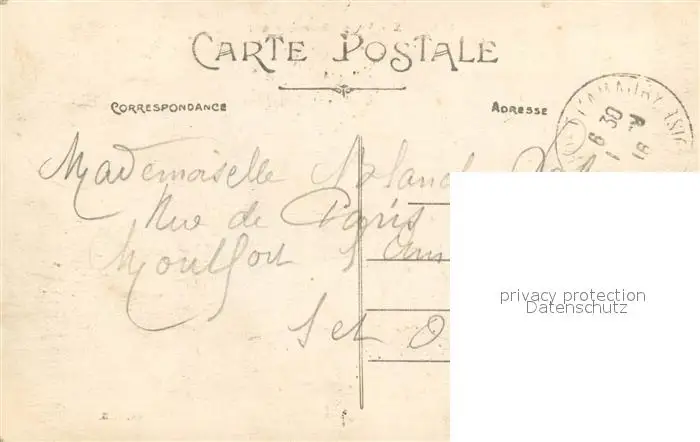 CARTE POSTALE
CORRESPONDANCE
ADRESSE
6 30
Mademoiselle Blanch
Rue de Paris
Montfort l'Am
S et O
privacy protection
Datenschutz